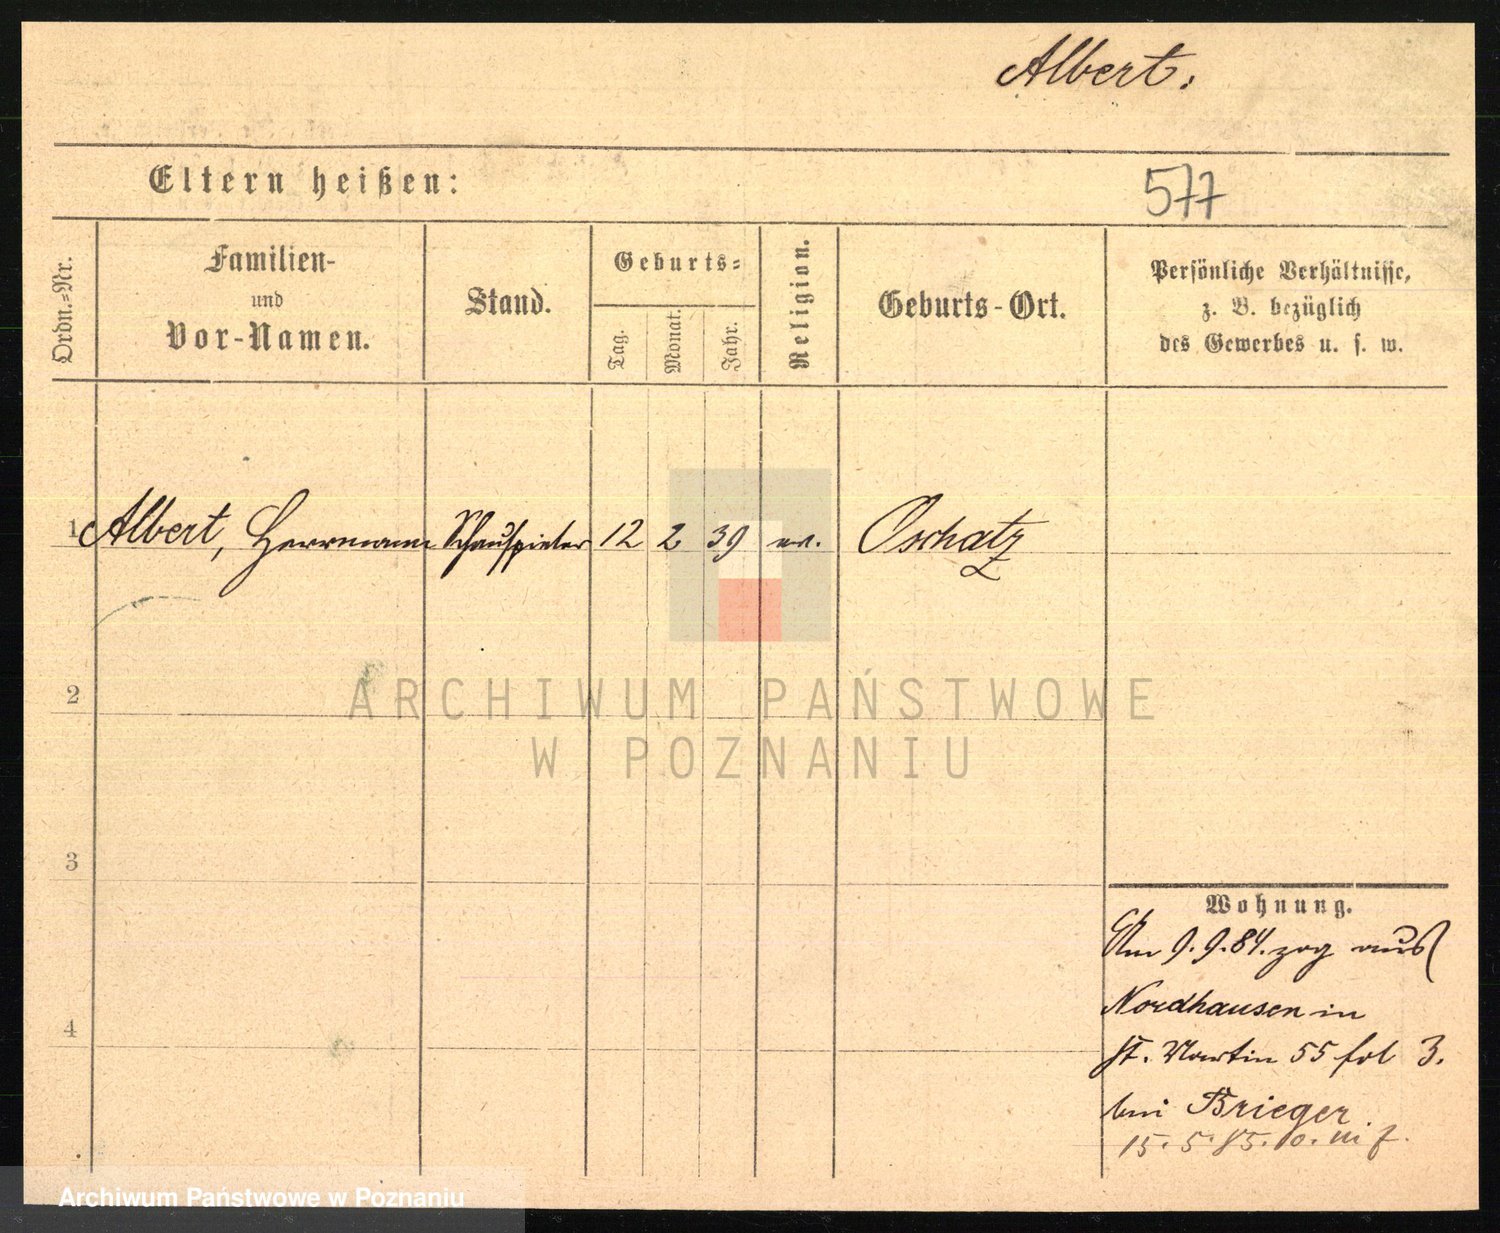 Albert.
Eltern heißen:
577
Ordn.-Nr.
Familien-
und
Vor-Namen.
Stand.
Geburts-
Tag.
Monat.
Jahr.
Religion.
Geburts-Ort.
Persönliche Verhältnisse,
z. B. bezüglich
des Gewerbes u. s. w.
1 Albert, Herrmann Schauspieler 12 2 39 ev. Oschatz
2
ARCHIWUM PAŃSTWOWE
W POZNANIU
3
Wohnung.
Am 9.9.84. zog aus
Nordhausen in
4
St. Martin 55 fol 3.
bei Brieger
15.5.85.
Archiwum Państwowe w Poznaniu